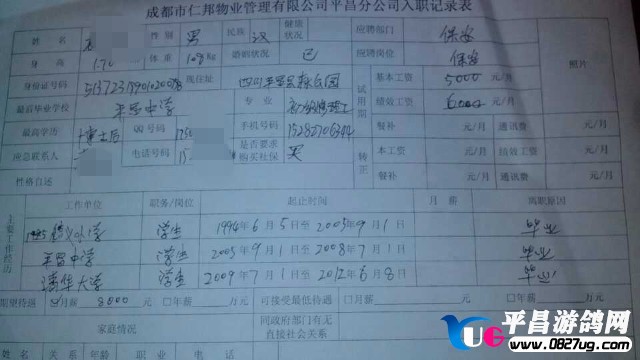 成都市仁邦物业管理有限公司平昌分公司入职记录表
姓名 性别 男 民族 汉 健康状况 应聘部门 保安 照片
身高 1.70 体重 108kg 婚姻状况 已 应聘岗位 保安
身份证号码 现住址 四川平昌县 公园 试用期 基本工资 5000 元/月
最后毕业学校 平昌中学 专业 绩效工资 6000 元/月
最高学历 博士后 QQ号码 1750 手机号码 15282706344 餐补 元/月 通讯费 元/月
应急联系人 电话号码 15 是否要求购买社保 买 转正 基本工资 元/月 绩效工资 元/月
性格自述 餐补 元/月 通讯费 元/月
主要工作经历 工作单位 职务/岗位 起止时间 月薪 离职原因
小学 学生 1994年6月5日至2005年9月1日 毕业
平昌中学 学生 2005年9月1日至2008年7月1日 毕业
清华大学 学生 2009年7月1日至2012年6月8日 毕业
期望待遇 月薪 8000 元 □年薪 万元 可接受最低待遇 □月薪 元 □年薪 万元
家庭情况 同政府部门有无直接社会关系
姓名 关系 年龄 职业 电话
YUG 平昌游鸽网
www.0827ug.com